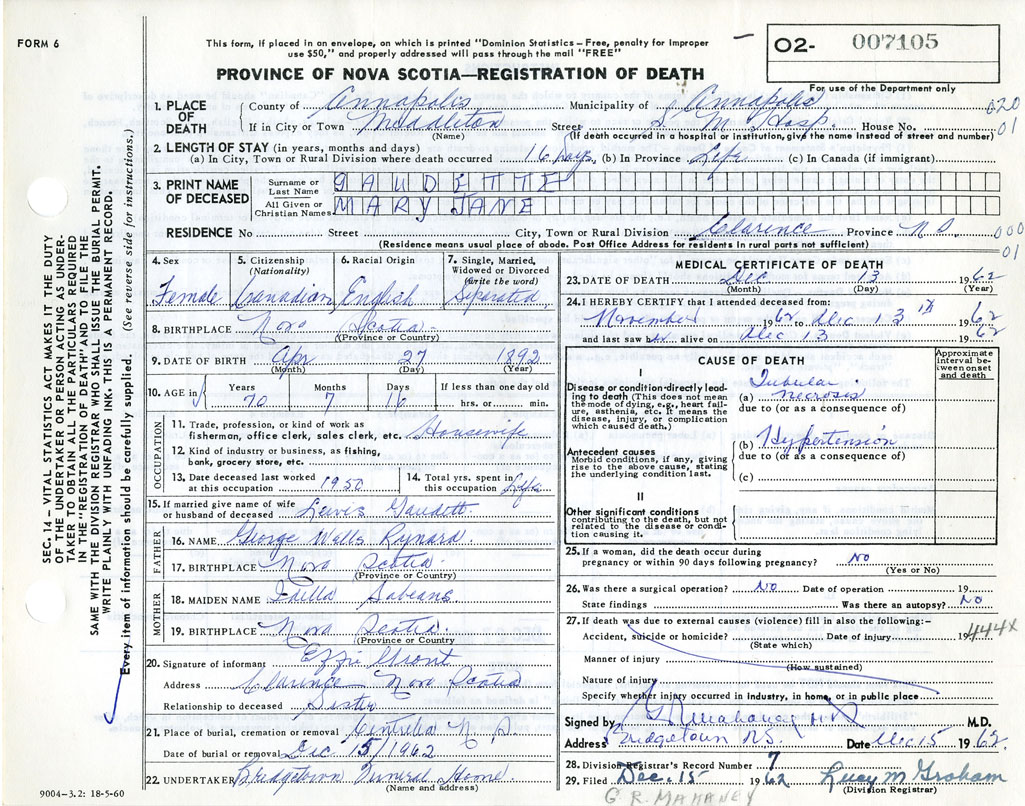 FORM 6
This form, if placed in an envelope, on which is printed "Dominion Statistics – Free, penalty for improper
use $50," and properly addressed will pass through the mail "FREE"
O2- 007105
PROVINCE OF NOVA SCOTIA—REGISTRATION OF DEATH
For use of the Department only
1. PLACE OF DEATH
County of Annapolis Municipality of Annapolis 020
If in City or Town Middleton Street S. M. Hosp. House No. 01
(Name) (If death occurred in a hospital or institution, give the name instead of street and number)
2. LENGTH OF STAY (in years, months and days)
(a) In City, Town or Rural Division where death occurred 16 days, (b) In Province Life (c) In Canada (if immigrant)
3. PRINT NAME OF DECEASED
Surname or Last Name GAUDETTE
All Given or Christian Names MARY JANE
RESIDENCE No Street City, Town or Rural Division Clarence Province N.S. 000
(Residence means usual place of abode. Post Office Address for residents in rural parts not sufficient) 01
4. Sex Female
5. Citizenship (Nationality) Canadian
6. Racial Origin English
7. Single, Married, Widowed or Divorced (write the word) Separated
8. BIRTHPLACE Nova Scotia
(Province or Country)
9. DATE OF BIRTH Apr 27 1892
(Month) (Day) (Year)
10. AGE in Years 70 Months 7 Days 16 If less than one day old hrs. or min.
OCCUPATION
11. Trade, profession, or kind of work as
fisherman, office clerk, sales clerk, etc. Housewife
12. Kind of industry or business, as fishing,
bank, grocery store, etc.
13. Date deceased last worked at this occupation 1950
14. Total yrs. spent in this occupation Life
15. If married give name of wife or husband of deceased Lewis Gaudett
FATHER
16. NAME George Wells Rynard
17. BIRTHPLACE Nova Scotia
(Province or Country)
MOTHER
18. MAIDEN NAME Idella Sabeans
19. BIRTHPLACE Nova Scotia
(Province or Country
20. Signature of informant Ezzie Grant
Address Clarence Nova Scotia
Relationship to deceased Sister
21. Place of burial, cremation or removal Centrelea N.S.
Date of burial or removal Dec 15/1962
22. UNDERTAKER Bridgetown Funeral Home
(Name and address)
9004-3.2: 18-5-60
MEDICAL CERTIFICATE OF DEATH
23. DATE OF DEATH Dec 13 1962
(Month) (Day) (Year)
24. I HEREBY CERTIFY that I attended deceased from:
November 1962 to Dec 13th 1962
and last saw her alive on Dec 13 1962
CAUSE OF DEATH
Approximate interval between onset and death
I
Disease or condition directly leading to death (This does not mean the mode of dying, e.g., heart failure, asthenia, etc. It means the disease, injury, or complication which caused death.)
(a) Tubular necrosis
due to (or as a consequence of)
Antecedent causes
Morbid conditions, if any, giving rise to the above cause, stating the underlying condition last.
(b) Hypertension
due to (or as a consequence of)
(c)
II
Other significant conditions
contributing to the death, but not related to the disease or condition causing it.
25. If a woman, did the death occur during
pregnancy or within 90 days following pregnancy? No
(Yes or No)
26. Was there a surgical operation? No Date of operation 19
State findings Was there an autopsy? No
27. If death was due to external causes (violence) fill in also the following:–
Accident, suicide or homicide? Date of injury 19 444X
(State which)
Manner of injury
(How sustained)
Nature of injury
Specify whether injury occurred in industry, in home, or in public place
Signed by G R Mahaney M.D. M.D.
Address Bridgetown N.S. Date Dec 15 1962.
28. Division Registrar's Record Number 7
29. Filed Dec. 15 1962 Lucy M Graham
(Division Registrar)
G. R. MAHANEY
SEC. 14 – VITAL STATISTICS ACT MAKES IT THE DUTY
OF THE UNDERTAKER OR PERSON ACTING AS UNDERTAKER
TO OBTAIN ALL THE PARTICULARS REQUIRED
IN THE "REGISTRATION OF DEATH" AND TO FILE THE
SAME WITH THE DIVISION REGISTRAR WHO SHALL ISSUE THE BURIAL PERMIT.
WRITE PLAINLY WITH UNFADING INK. THIS IS A PERMANENT RECORD.
Every item of information should be carefully supplied. (See reverse side for instructions.)